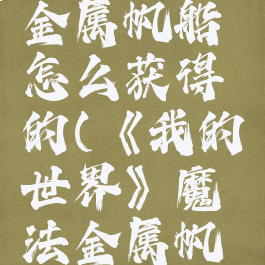 金属帆船
怎么获得
的(《我的
世界》魔
法金属帆